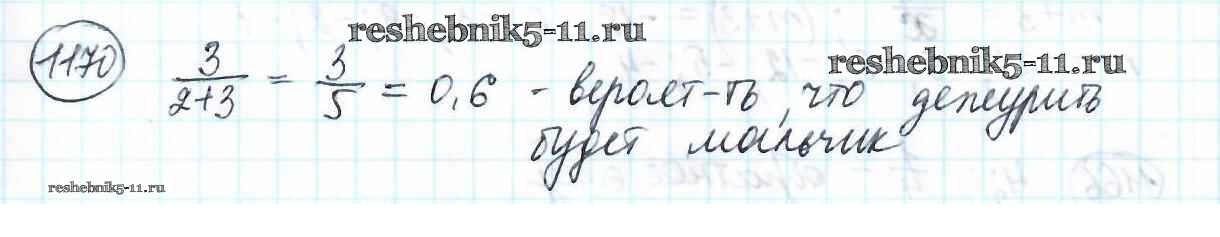 reshebnik5-11.ru
reshebnik5-11.ru
1170 3/(2+3) = 3/5 = 0,6 - вероят-ть, что дежурить
будет мальчик
reshebnik5-11.ru